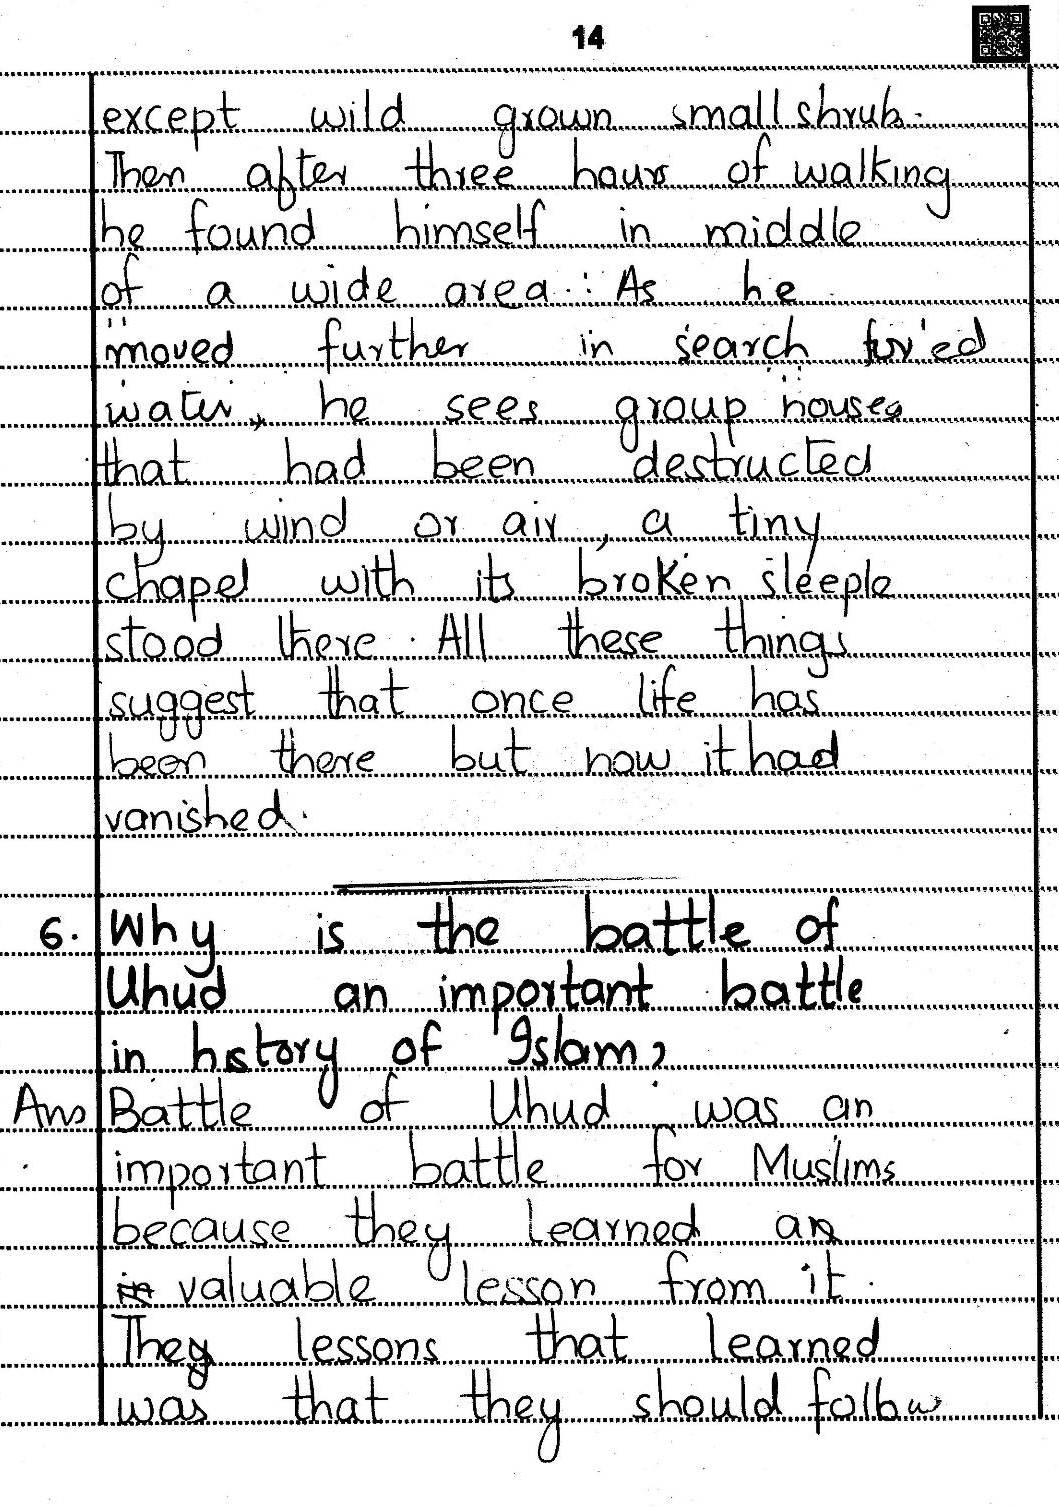 14
except wild grown small shrub.
Then after three hours of walking
he found himself in middle
of a wide area. As he
moved further in search
water, he sees group houses
that had been destructed
by wind or air, a tiny
chapel with its broken sleeple
stood there. All these things
suggest that once life has
been there but now it had
vanished.
6. Why is the battle of
Uhud an important battle
in history of Islam?
Ans Battle of Uhud was an
important battle for Muslims
because they learned a
valuable lesson from it.
They lessons that learned
was that they should follow